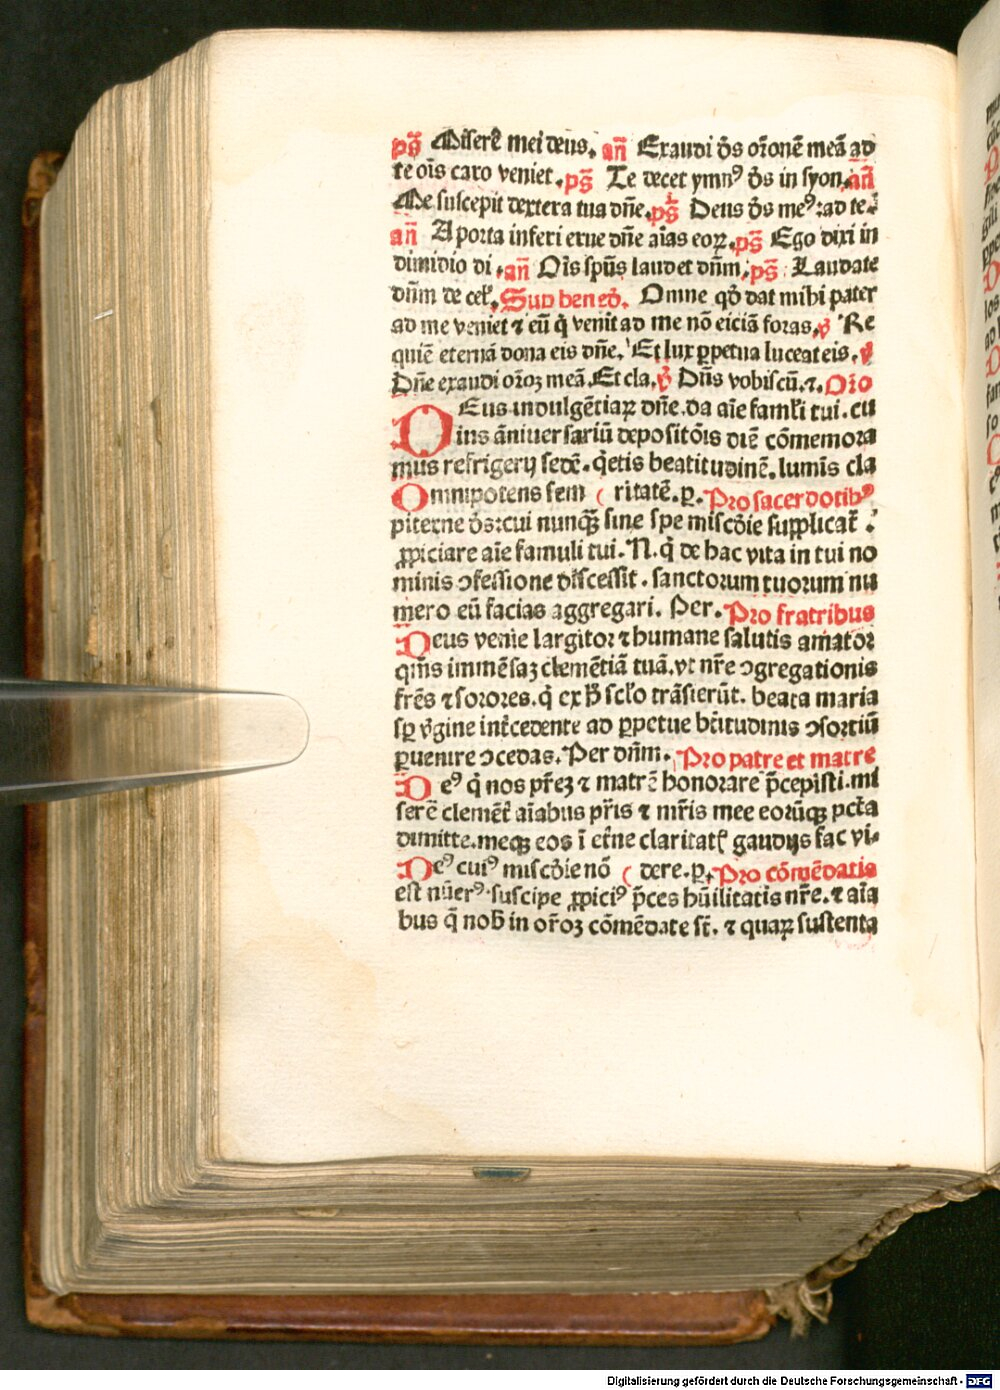 ps̄ Miserē mei deus. an̄ Exaudi d̄s or̄onē meā ad
te oīs caro veniet. ps̄ Te decet ymnꝰ d̄s in syon. an̄
Me suscepit dextera tua dn̄e. ps̄ Deus d̄s meꝰ: ad te.
an̄ A porta inferi erue dn̄e aīas eoꝝ. ps̄ Ego dixi in
dimidio di. an̄ Oīs sp̄us laudet dn̄m. ps̄ Laudate
dn̄m de cel̄. Sup bened̄. Omne qd̄ dat mihi pater
ad me veniet ⁊ eū q̄ venit ad me nō eiciā foras. v̄ Re
quiē eternā dona eis dn̄e. Et lux ꝑpetua luceat eis. v̄
Dn̄e exaudi or̄oꝫ meā. Et cla. v̄ Dn̄s vobiscū. ⁊. Oro
DEus indulgētiaꝝ dn̄e. da aīe famł̄i tui. cu
ius āniuersariū depositōis diē cōmemora
mus refrigerij sedē. q̄etis beatitudinē. lumīs cla
Omnipotens sem ( ritatē. p. Pro sacerdotibꝰ
piterne d̄s: cui nunqꝫ̄ sine spe misc̄die supplicat̄.
ꝓpiciare aīe famuli tui. N. q̄ de hac vita in tui no
minis ↄfessione discessit. sanctorum tuorum nu
mero eū facias aggregari. Per. Pro fratribus
Deus venie largitor ⁊ humane salutis amator
qm̄s immēsaꝫ clemētiā tuā. vt nr̄e ↄgregationis
frēs ⁊ sorores. q̄ ex h̄ scl̄o trāsierūt. beata maria
sꝑ v̄gine int̄cedente ad ꝑpetue b̄titudinis ↄsortiū
ꝑuenire ↄcedas. Per dn̄m. Pro patre et matre
Deꝰ q̄ nos pr̄eꝫ ⁊ matrē honorare p̄cepisti. mi
serē clemēt̄ aīabus pr̄is ⁊ mr̄is mee eorūqꝫ pctā
dimitte. meqꝫ eos ī et̄ne claritat̄ gaudijs fac vi-
Deꝰ cuiꝰ misc̄die nō ( dere. p. Pro cōmēdatis
est nūerꝰ. suscipe ꝓpiciꝰ p̄ces hūilitatis nr̄e. ⁊ aīa
bus q̄ nob̄ in or̄oꝫ cōmēdate st̄. ⁊ quaꝝ sustenta
Digitalisierung gefördert durch die Deutsche Forschungsgemeinschaft - DFG